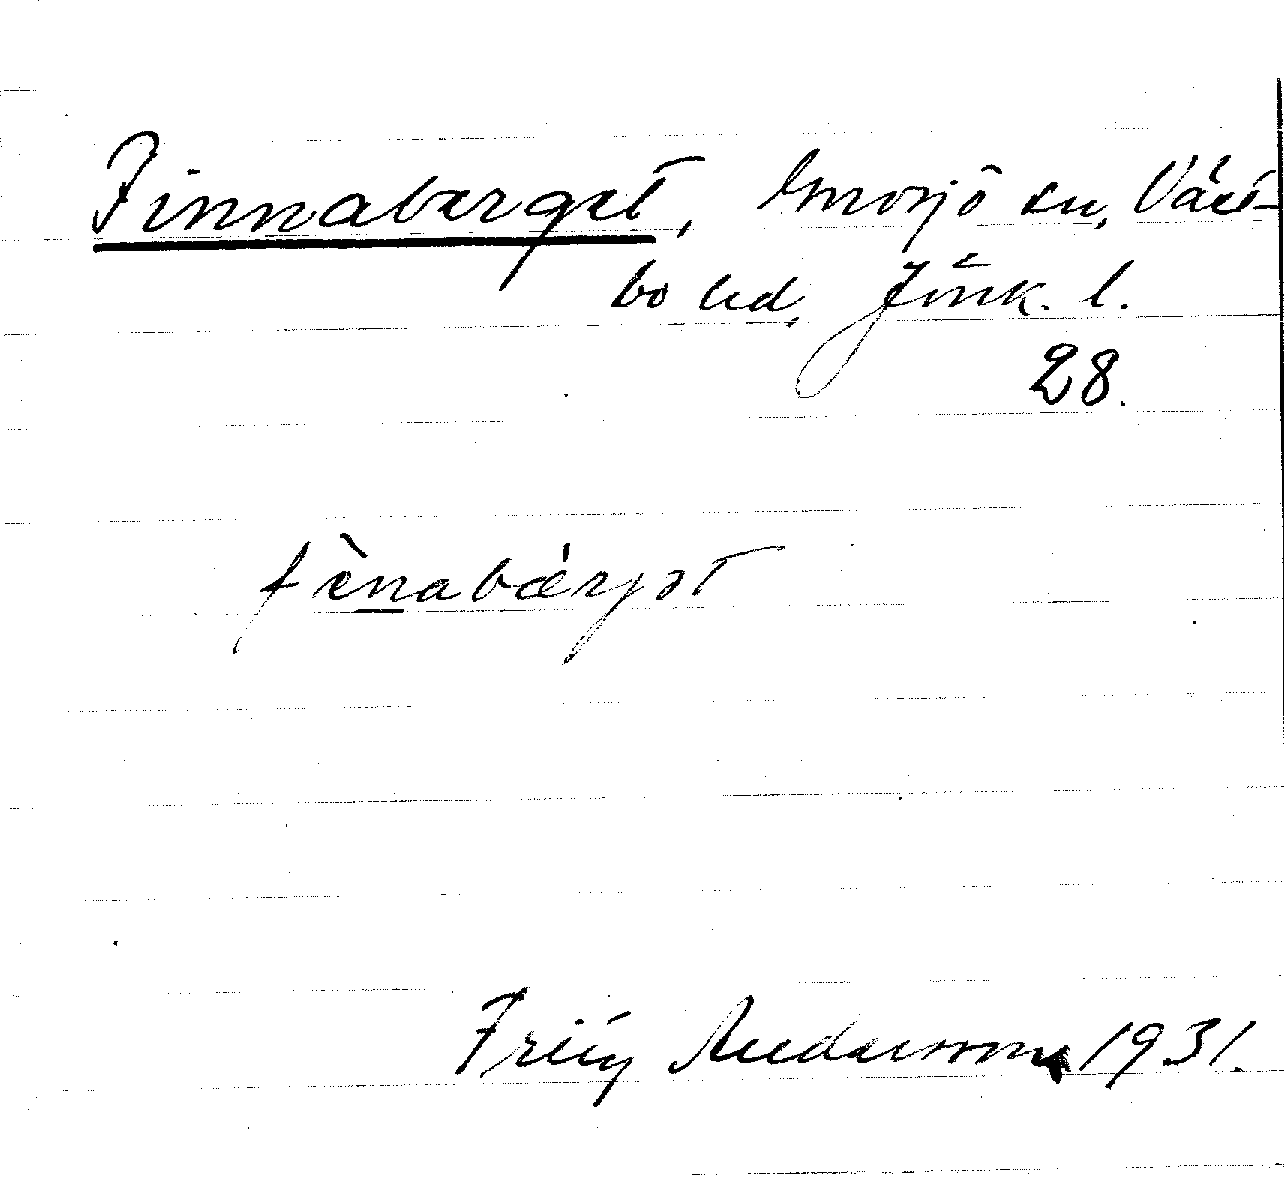 Finnaberget, Gnosjö sn, Väst-
bo hd, Jönk. l.
28.
fìnabǽrjət
Fritz Andersson 1931.